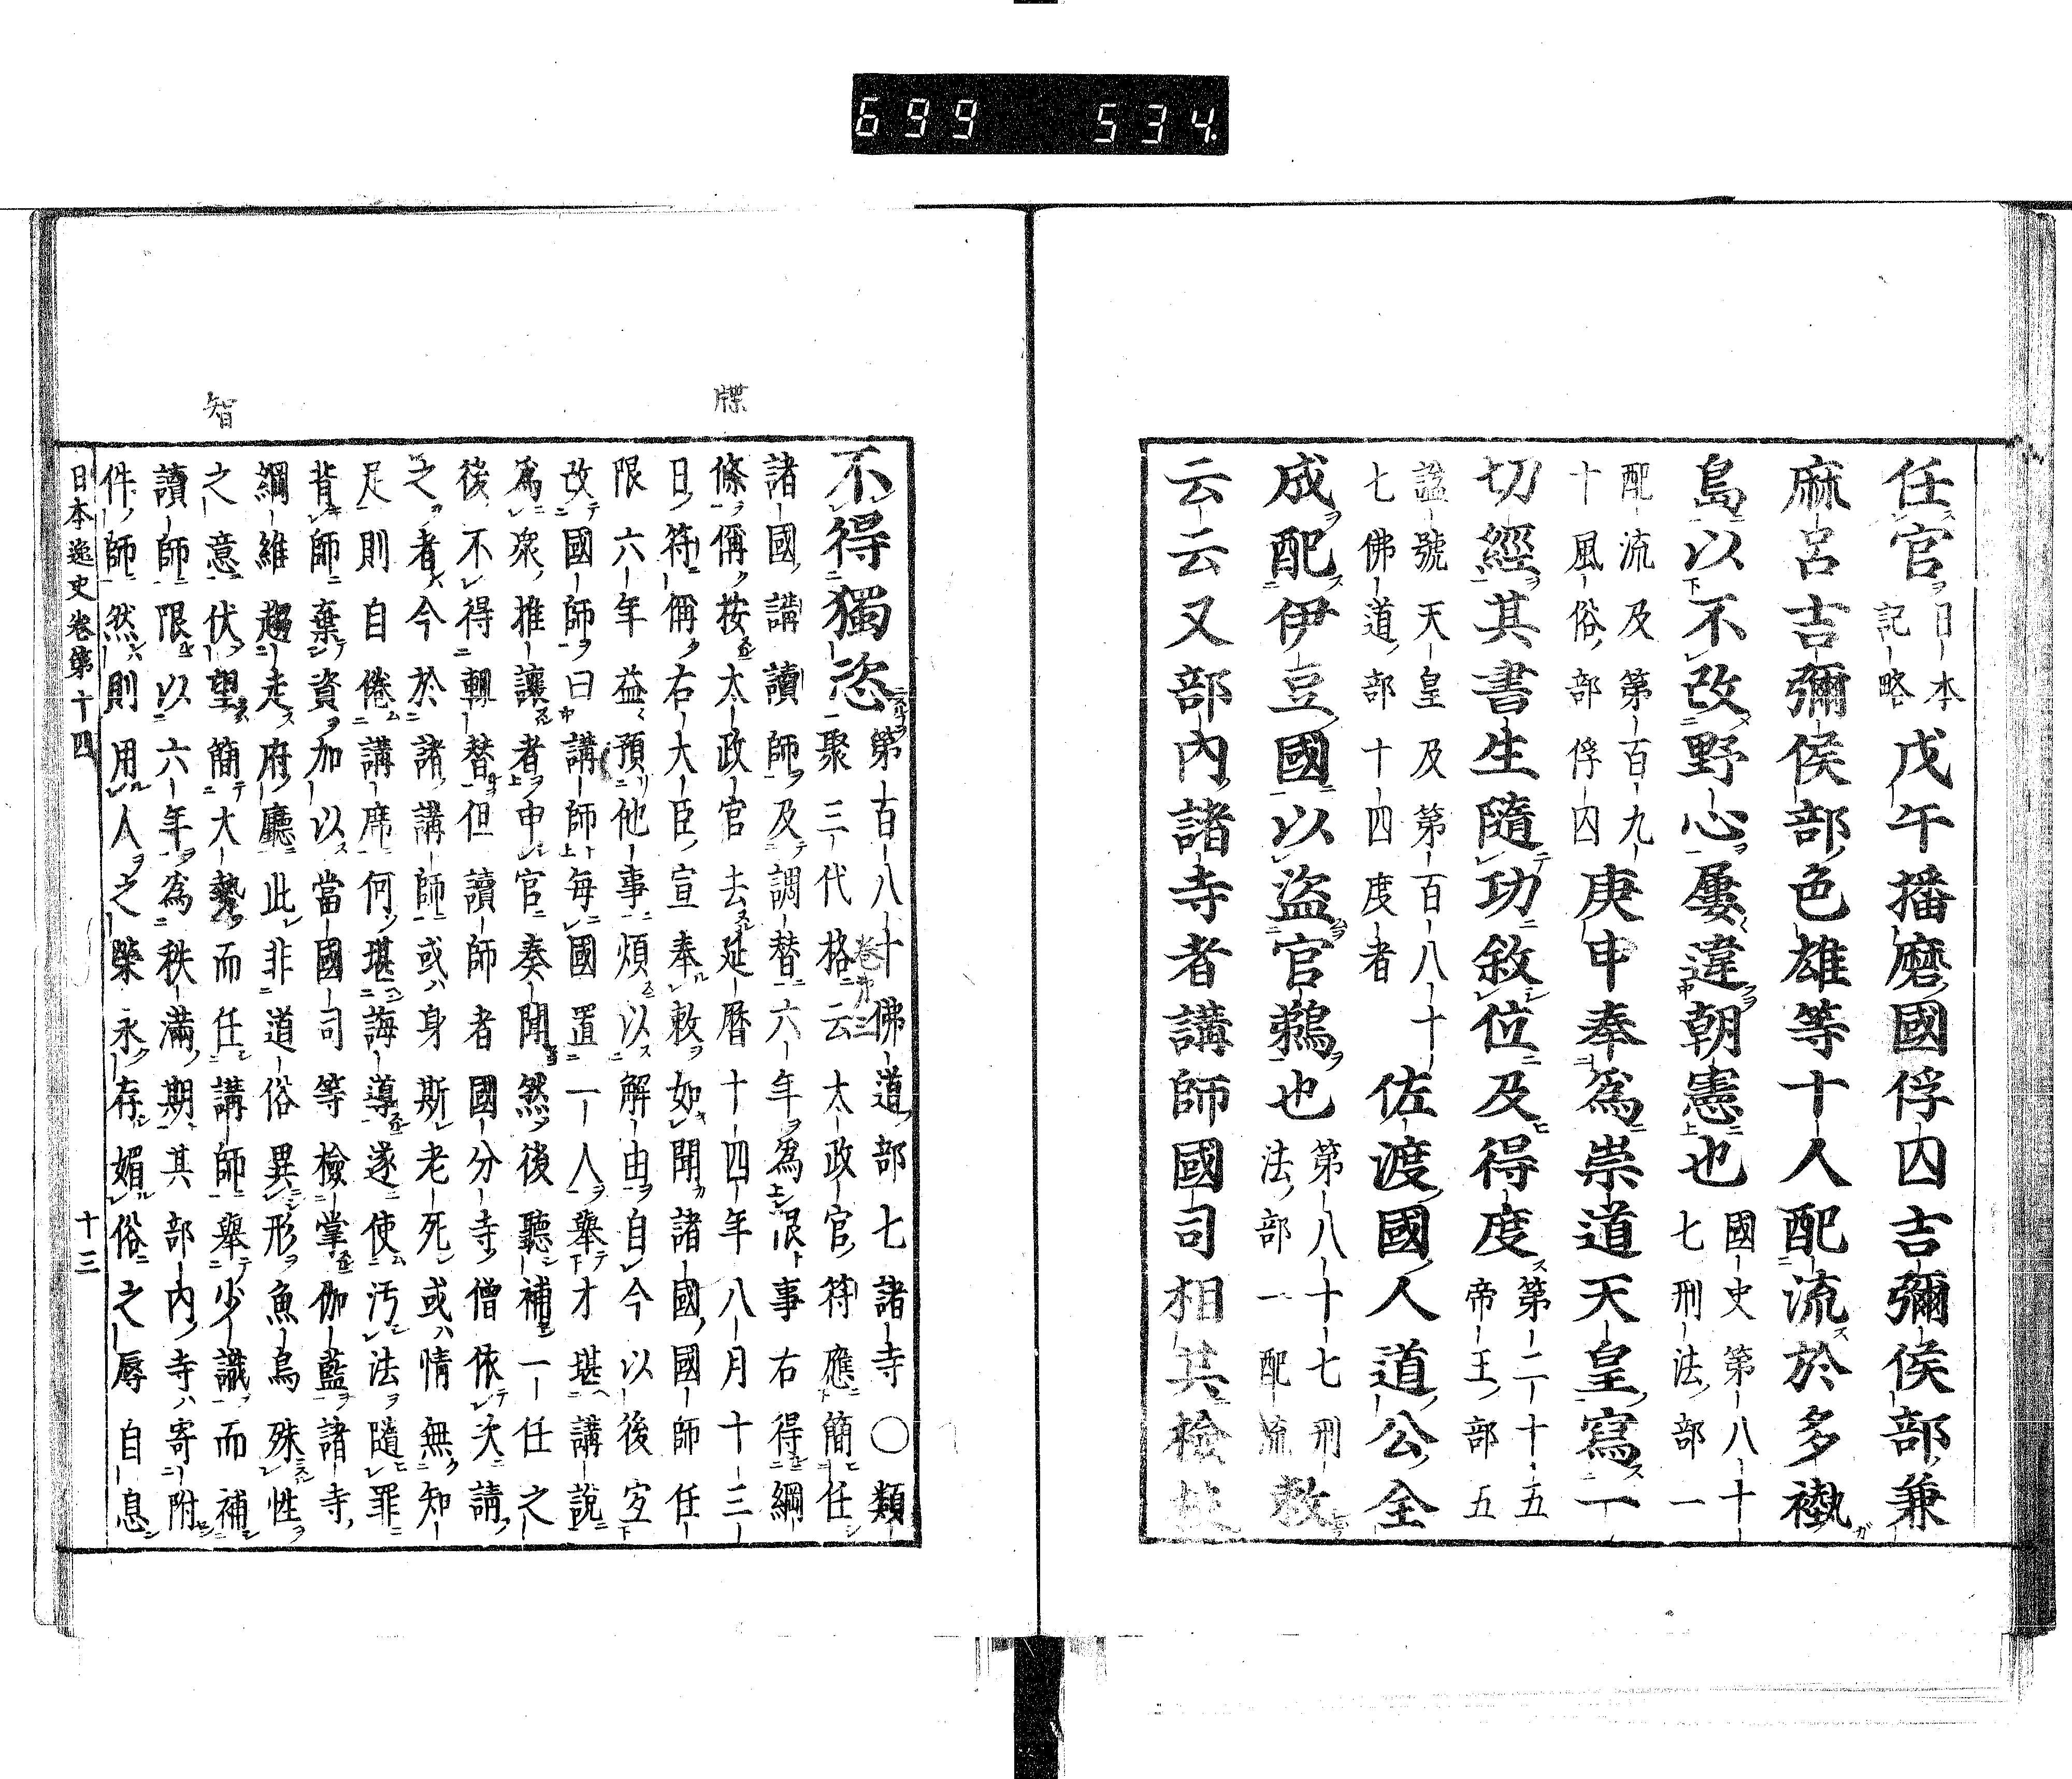 任官日本記略戊午播磨國俘囚吉彌侯部兼
麻呂吉彌侯部色雄等十人配流於多褹
島以不改野心屢違朝憲也國史第八十七刑法部一
配流及第百九十風俗部俘囚庚申奉爲崇道天皇寫一
切經其書生隨功敘位及得度第二十五帝王部五
謚號天皇及第百八十七佛道部十四度者佐渡國人道公全
成配伊豆國以盜官鵜也第八十七刑法部一配流敕
云云又部內諸寺者講師國司相共檢校
不得獨恣第百八十佛道部七諸寺○類
聚三代格云太政官符應簡任
諸國講讀師及調替六年爲限事右得綱
牒
條偁按太政官去延曆十四年八月十三
日符偁右大臣宣奉敕如聞諸國國師任
限六年益預他事煩以解由自今以後宜
改國師曰講師每國置一人舉才堪講說
爲衆推讓者申官奏聞然後聽補一任之
後不得輒替但讀師者國分寺僧依次請
之者今於諸講師或身斯老死或情無知
足則自倦講席何堪誨導遂使汚法隨罪
背師棄資加以當國司等檢掌伽藍諸寺
綱維趨走府廳此非道俗異形魚鳥殊性
智
之意伏望簡大勢而任講師舉少識而補
讀師限以六年爲秩滿期其部內寺寄附
件師然則用人之榮永存媚俗之辱自息
日本逸史卷第十四 十三
699 534